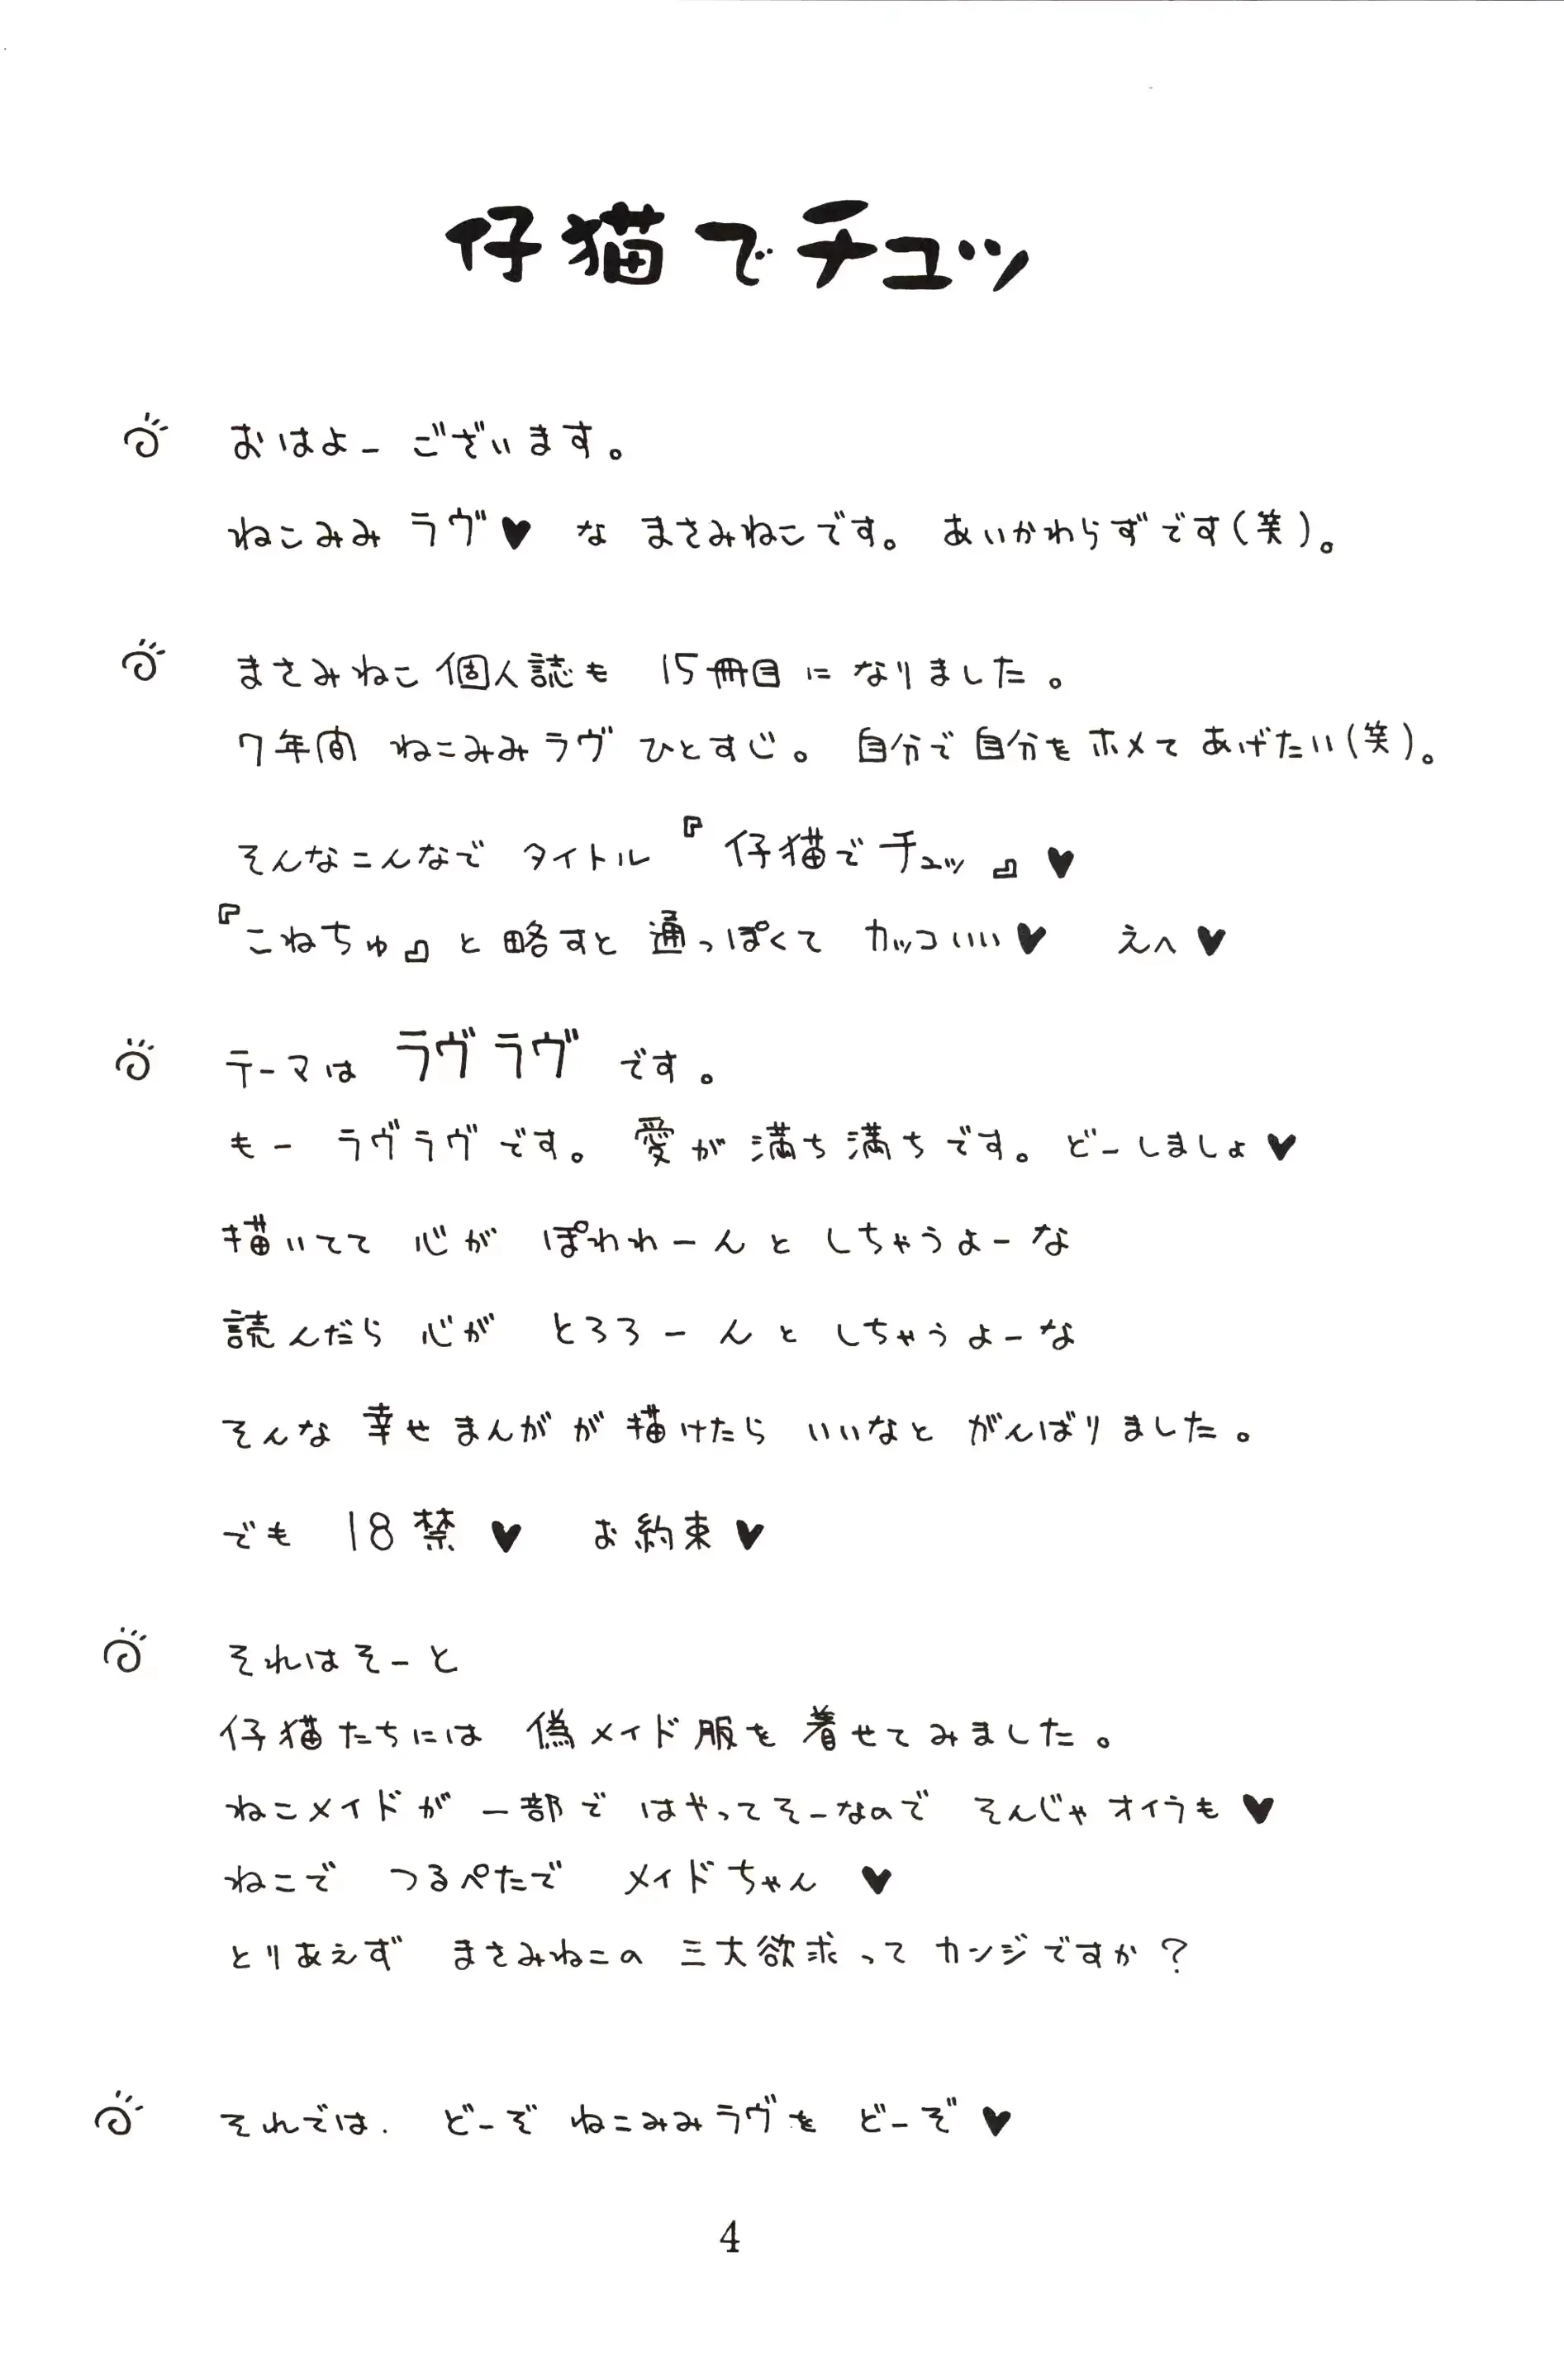 仔猫でチュッ
おはよーございます。
ねこみみラヴ♥な まさみねこです。 あいかわらずです(笑)。
まさみねこ個人誌も 15冊目になりました。
7年間 ねこみみラヴひとすじ。 自分で自分をホメてあげたい(笑)。
そんなこんなで タイトル『仔猫でチュッ』♥
『こねちゅ』と略すと通っぽくて カッコいい♥ えへ♥
テーマは ラヴラヴ です。
もー ラヴラヴです。 愛が満ち満ちです。どーしましょ♥
描いてて 心が ぽわわーんと しちゃうよーな
読んだら 心が とろろーんと しちゃうよーな
そんな幸せまんがが描けたら いいなと がんばりました。
でも 18禁♥ お約束♥
それはそーと
仔猫たちには 偽メイド服を着せてみました。
ねこメイドが 一部で はやってそーなので そんじゃオイラも♥
ねこで つるぺたで メイドちゃん♥
とりあえず まさみねこの 三大欲求ってカンジですか?
それでは. どーぞ ねこみみラヴを どーぞ♥
4